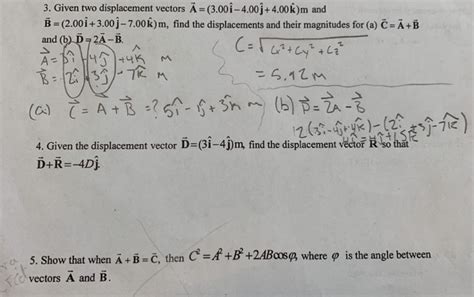 3. Given two displacement vectors A⃗ = (3.00î − 4.00ĵ + 4.00k̂)m and
B⃗ = (2.00î + 3.00ĵ − 7.00k̂)m, find the displacements and their magnitudes for (a) C⃗ = A⃗ + B⃗
and (b) D⃗ = 2A⃗ − B⃗.
C = √Cx² + Cy² + Cz²
A⃗ = 3î - 4ĵ + 4k̂ m
B⃗ = 2î 3ĵ - 7k̂ m
= 5.92 m
(a) C⃗ = A⃗ + B⃗ = ? 5î - ĵ + 3k̂ m (b) D⃗ = 2A⃗ - B⃗
2(3î - 4ĵ + 4k̂) - (2î + 3ĵ - 7k̂)
4. Given the displacement vector D⃗ = (3î − 4ĵ)m, find the displacement vector R⃗ so that
D⃗ + R⃗ = −4Dĵ.
5. Show that when A⃗ + B⃗ = C⃗, then C² = A² + B² + 2AB cos φ, where φ is the angle between
vectors A⃗ and B⃗.